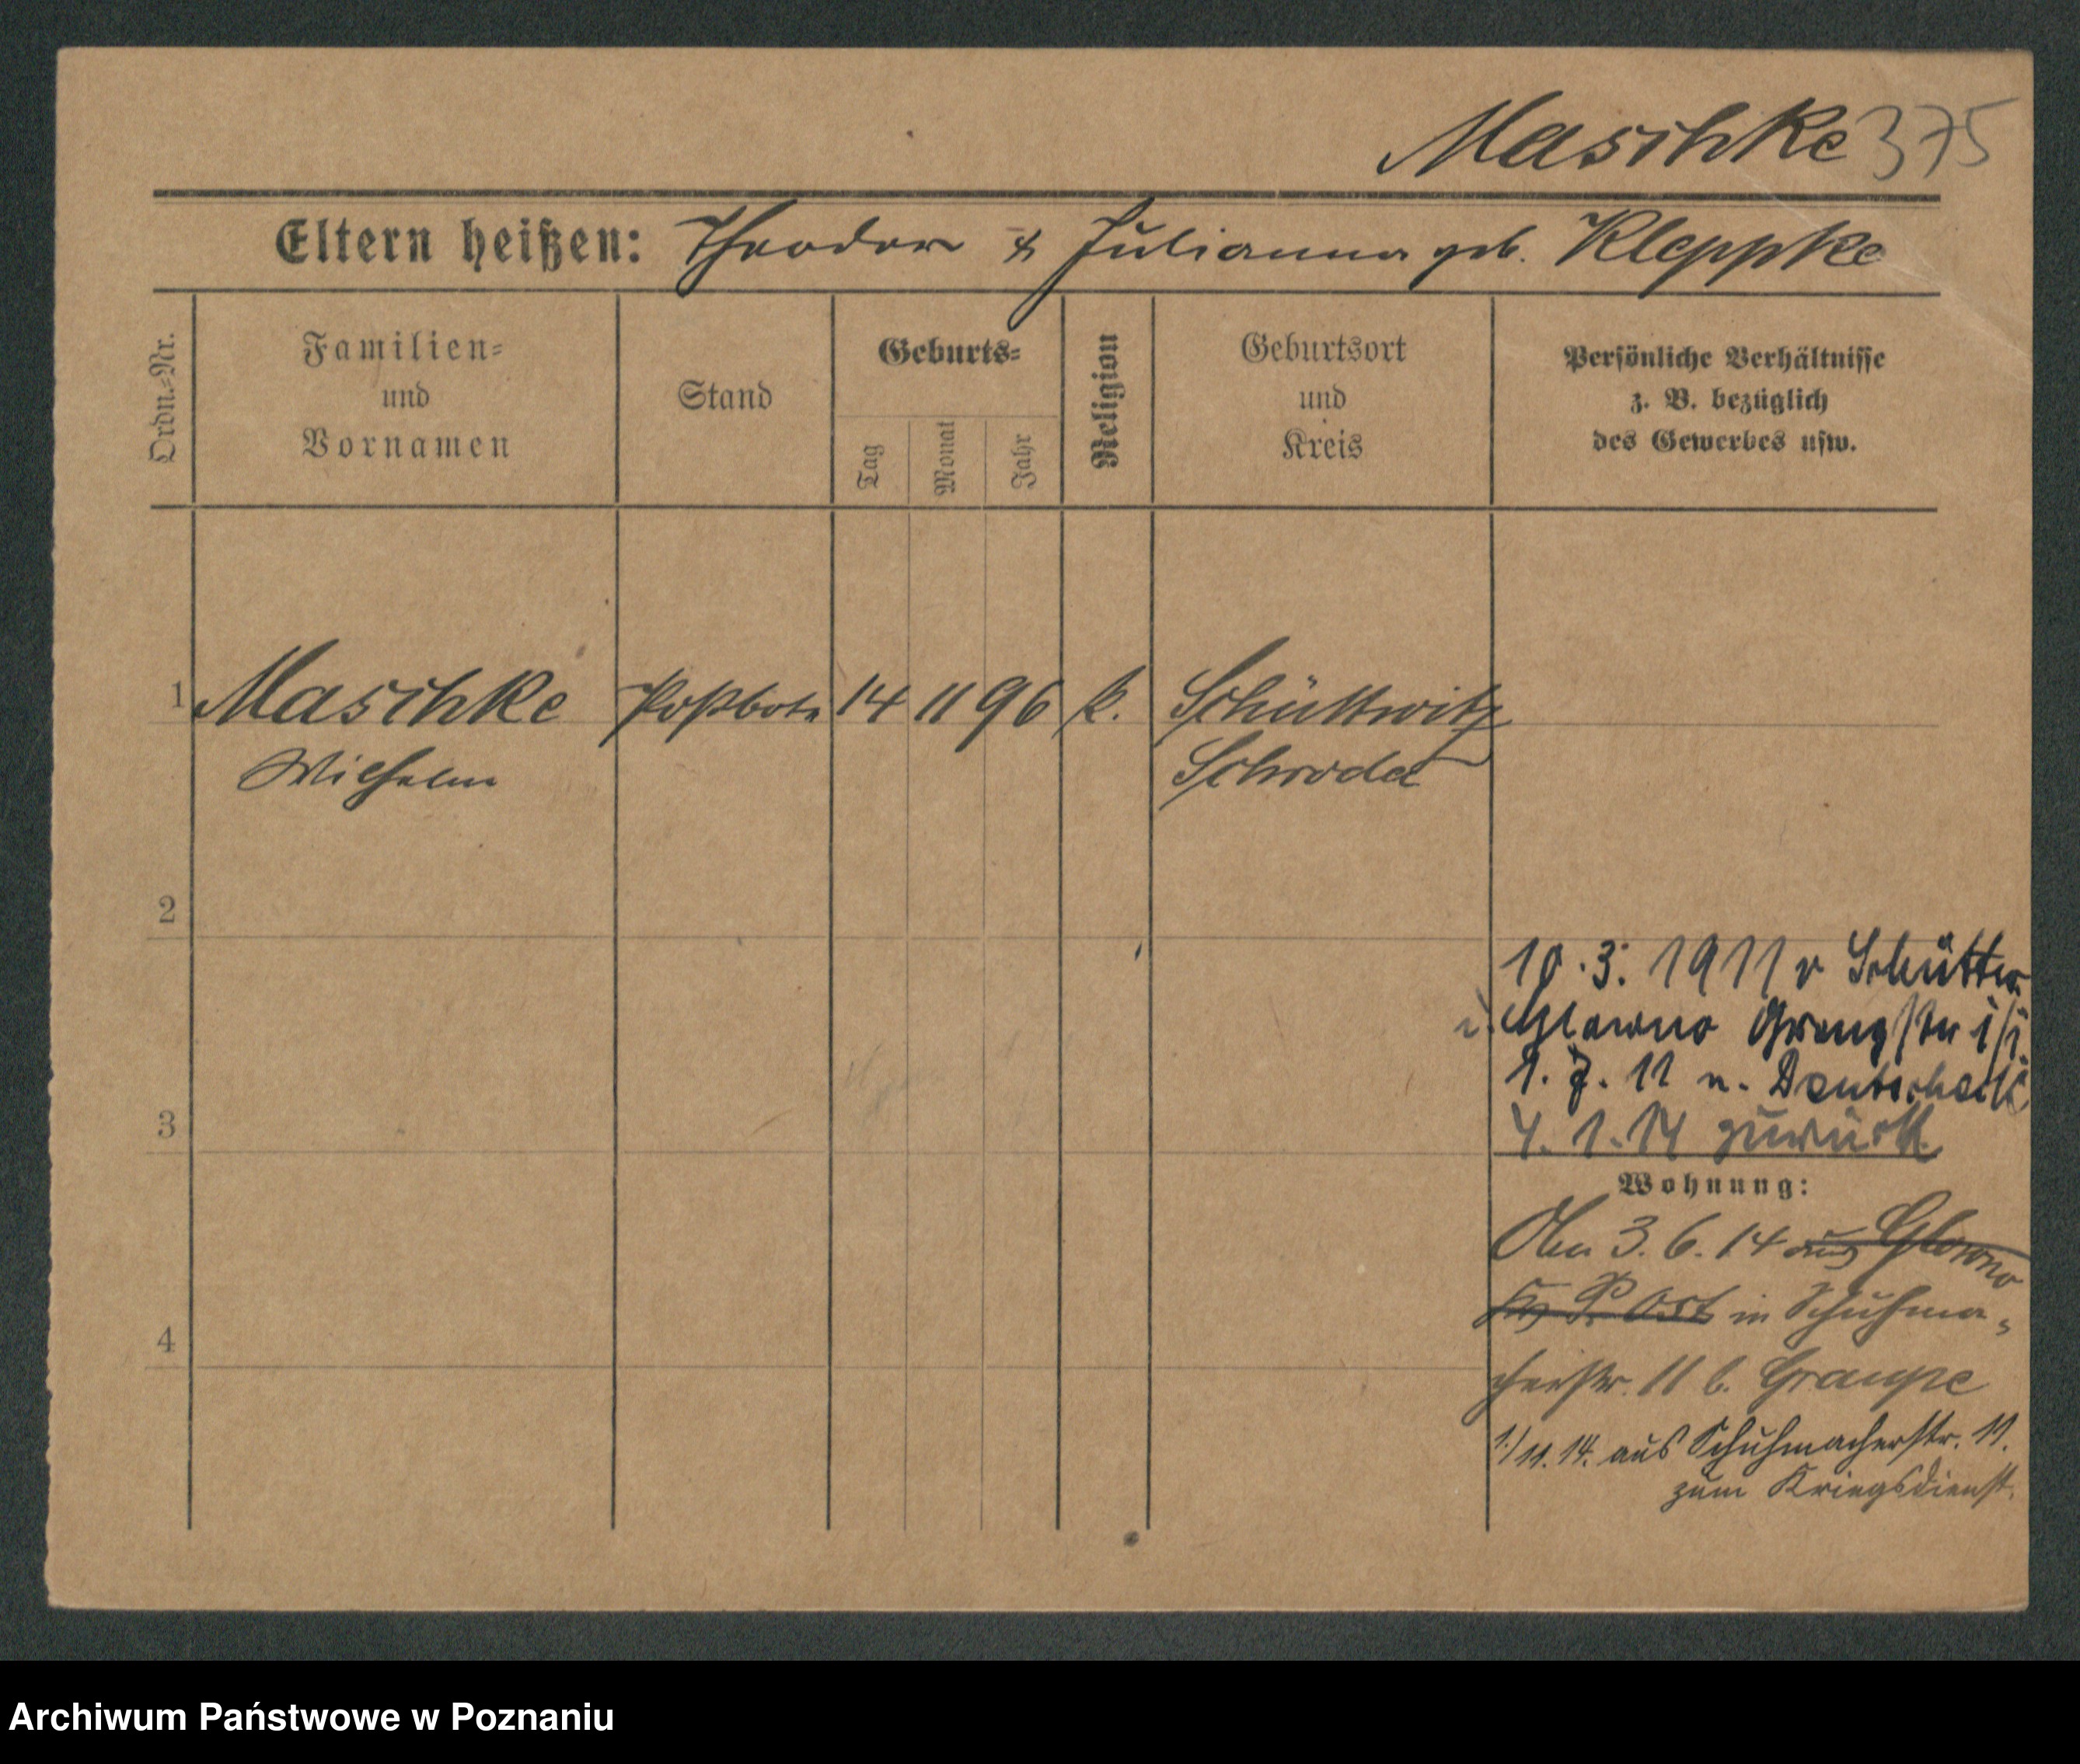 Maschke 375
Eltern heißen: Theodor & Julianna geb. Kleppke
Ordn.=Nr.
Familien=
und
Vornamen
Stand
Geburts=
Tag
Monat
Jahr
Religion
Geburtsort
und
Kreis
Persönliche Verhältnisse
z. B. bezüglich
des Gewerbes usw.
1 Maschke Postbote 14 11 96 k. Schüttwitz
Wilhelm Schroda
2
3
4
10.3. 1911 v Schüttw.
n. Glowno
1.7.11 n.
4.1.14 zurück
Wohnung:
3.6.14 aus Glowno
P. Ost in Schuhma-
cherstr. 11 b. Graupe
1./11.14. aus Schuhmacherstr. 11.
zum Kriegsdienst.
Archiwum Państwowe w Poznaniu